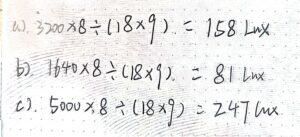 a). 3200×8÷(18×9) = 158 Lux
b). 1640×8÷(18×9). = 81 Lux
c). 5000×8÷(18×9) = 247 lux